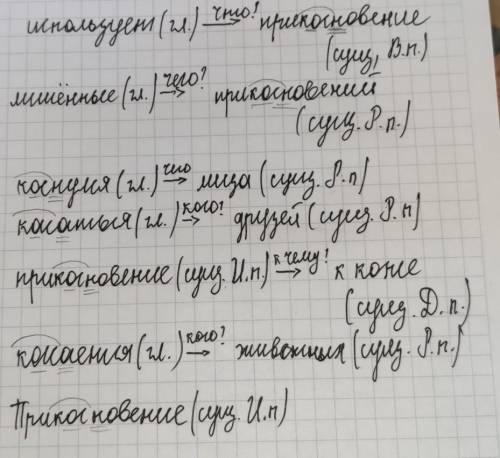 использует (гл.) что? → прикосновение
(сущ, В.п.)
лишённые (гл.) чего? → прикосновений
(сущ. Р.п.)
коснулся (гл.) чего → лица (сущ. Р.п)
касаться (гл.) кого? → друзей (сущ. Р.п)
прикосновение (сущ. И.п.) к чему? → к коже
(сущ. Д.п.)
касается (гл.) кого? → животных (сущ. Р.п.)
Прикосновение (сущ. И.п)